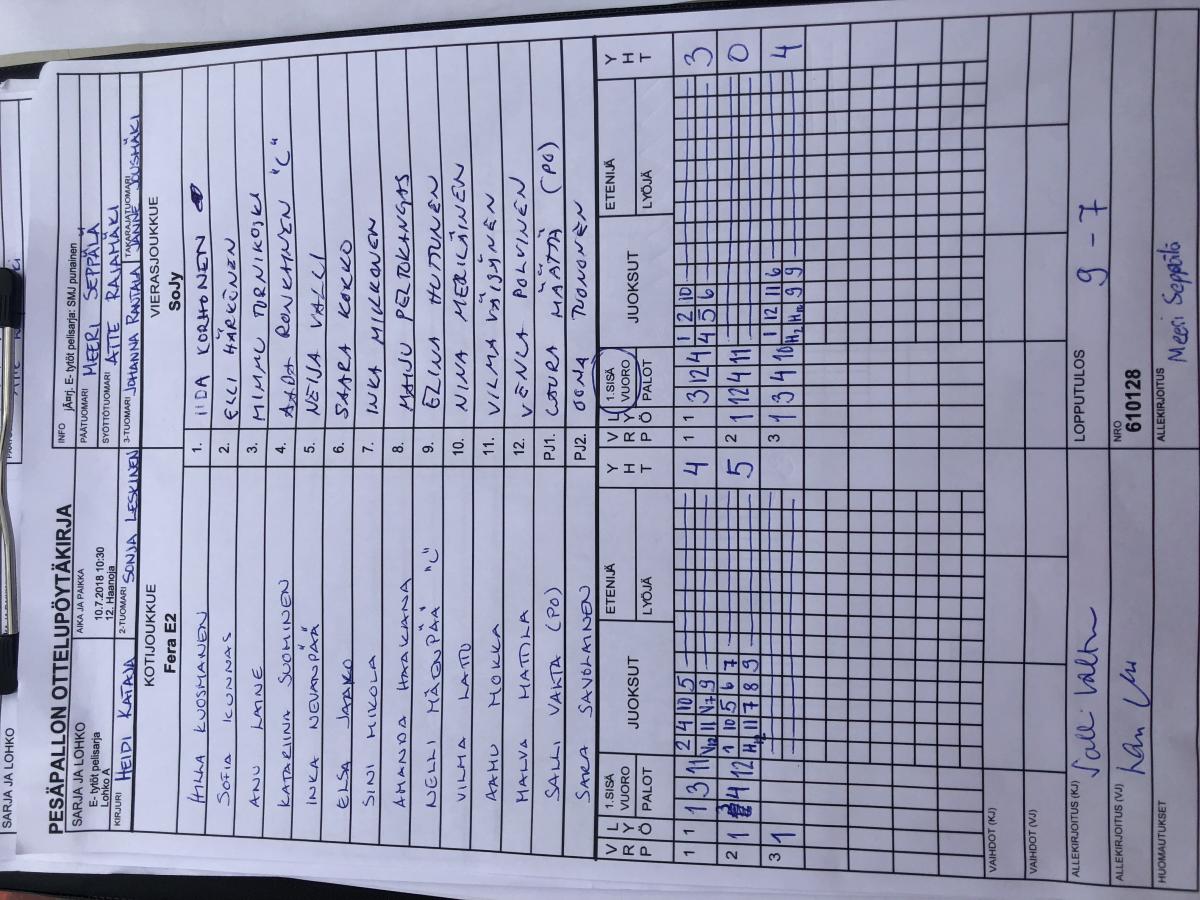 SARJA JA LOHKO
PESÄPALLON OTTELUPÖYTÄKIRJA
SARJA JA LOHKO
E- tytöt pelisarja
Lohko A
AIKA JA PAIKKA
10.7.2018 10:30
12, Haanoja
INFO jÄrrj. E- tytöt pelisarja: SMJ punainen
PÄÄTUOMARI MEERI SEPPÄLÄ
SYÖTTÖTUOMARI ATTE RAJAMÄKI
KIRJURI HEIDI KATAJA
2-TUOMARI SONJA LESKINEN
3-TUOMARI JOHANNA RANTALA
TAKARAJATUOMARI JANNE JOUSMÄKI
KOTIJOUKKUE
Fera E2
VIERASJOUKKUE
SoJy
HILKA KUOSMANEN 1. IIDA KORHONEN
SOFIA KUNNAS 2. ELLI HÄRKÖNEN
ANU LAINE 3. MIMMU TURNIKOSKI
KATARIINA SUOMINEN 4. AADA RONKAINEN "C"
INKA NEVANPÄÄ 5. NEIJA VALLI
ELSA JAAKO 6. SAARA KOKKO
SINI MIKOLA 7. INKA MIKKONEN
AMANDA HAAKANA 8. MAIJU PELTOKANGAS
NELLI MÄENPÄÄ "C" 9. ELINA HUTTUNEN
VILMA LATTU 10. NINA MERILÄINEN
AAMU MOKKA 11. VILMA VÄISÄNEN
MALVA MATTILA 12. VENLA POLVINEN
SALLI VAKTA (PO) PJ1. LAURA MÄÄTTÄ (PO)
SARA SAVOLAINEN PJ2. OONA TUONONEN
V R P L Y Ö 1.SISÄ VUORO PALOT JUOKSUT ETENIJÄ LYÖJÄ Y H T
V R P L Y Ö 1.SISÄ VUORO PALOT JUOKSUT ETENIJÄ LYÖJÄ Y H T
1 1 1 3 11 2 4 10 5 4
V10 11 V7 9
1 1 3 12 4 1 2 10 3
4 5 6
2 1 4 12 1 10 5 6 7 5
H12 11 7 8 9
2 1 12 4 11 0
3 1
3 1 3 4 10 1 12 11 6 4
H2 H10 9 9
VAIHDOT (KJ)
VAIHDOT (VJ)
ALLEKIRJOITUS (KJ)
LOPPUTULOS 9 - 7
ALLEKIRJOITUS (VJ)
NRO
610128
HUOMAUTUKSET
ALLEKIRJOITUS Meeri Seppälä